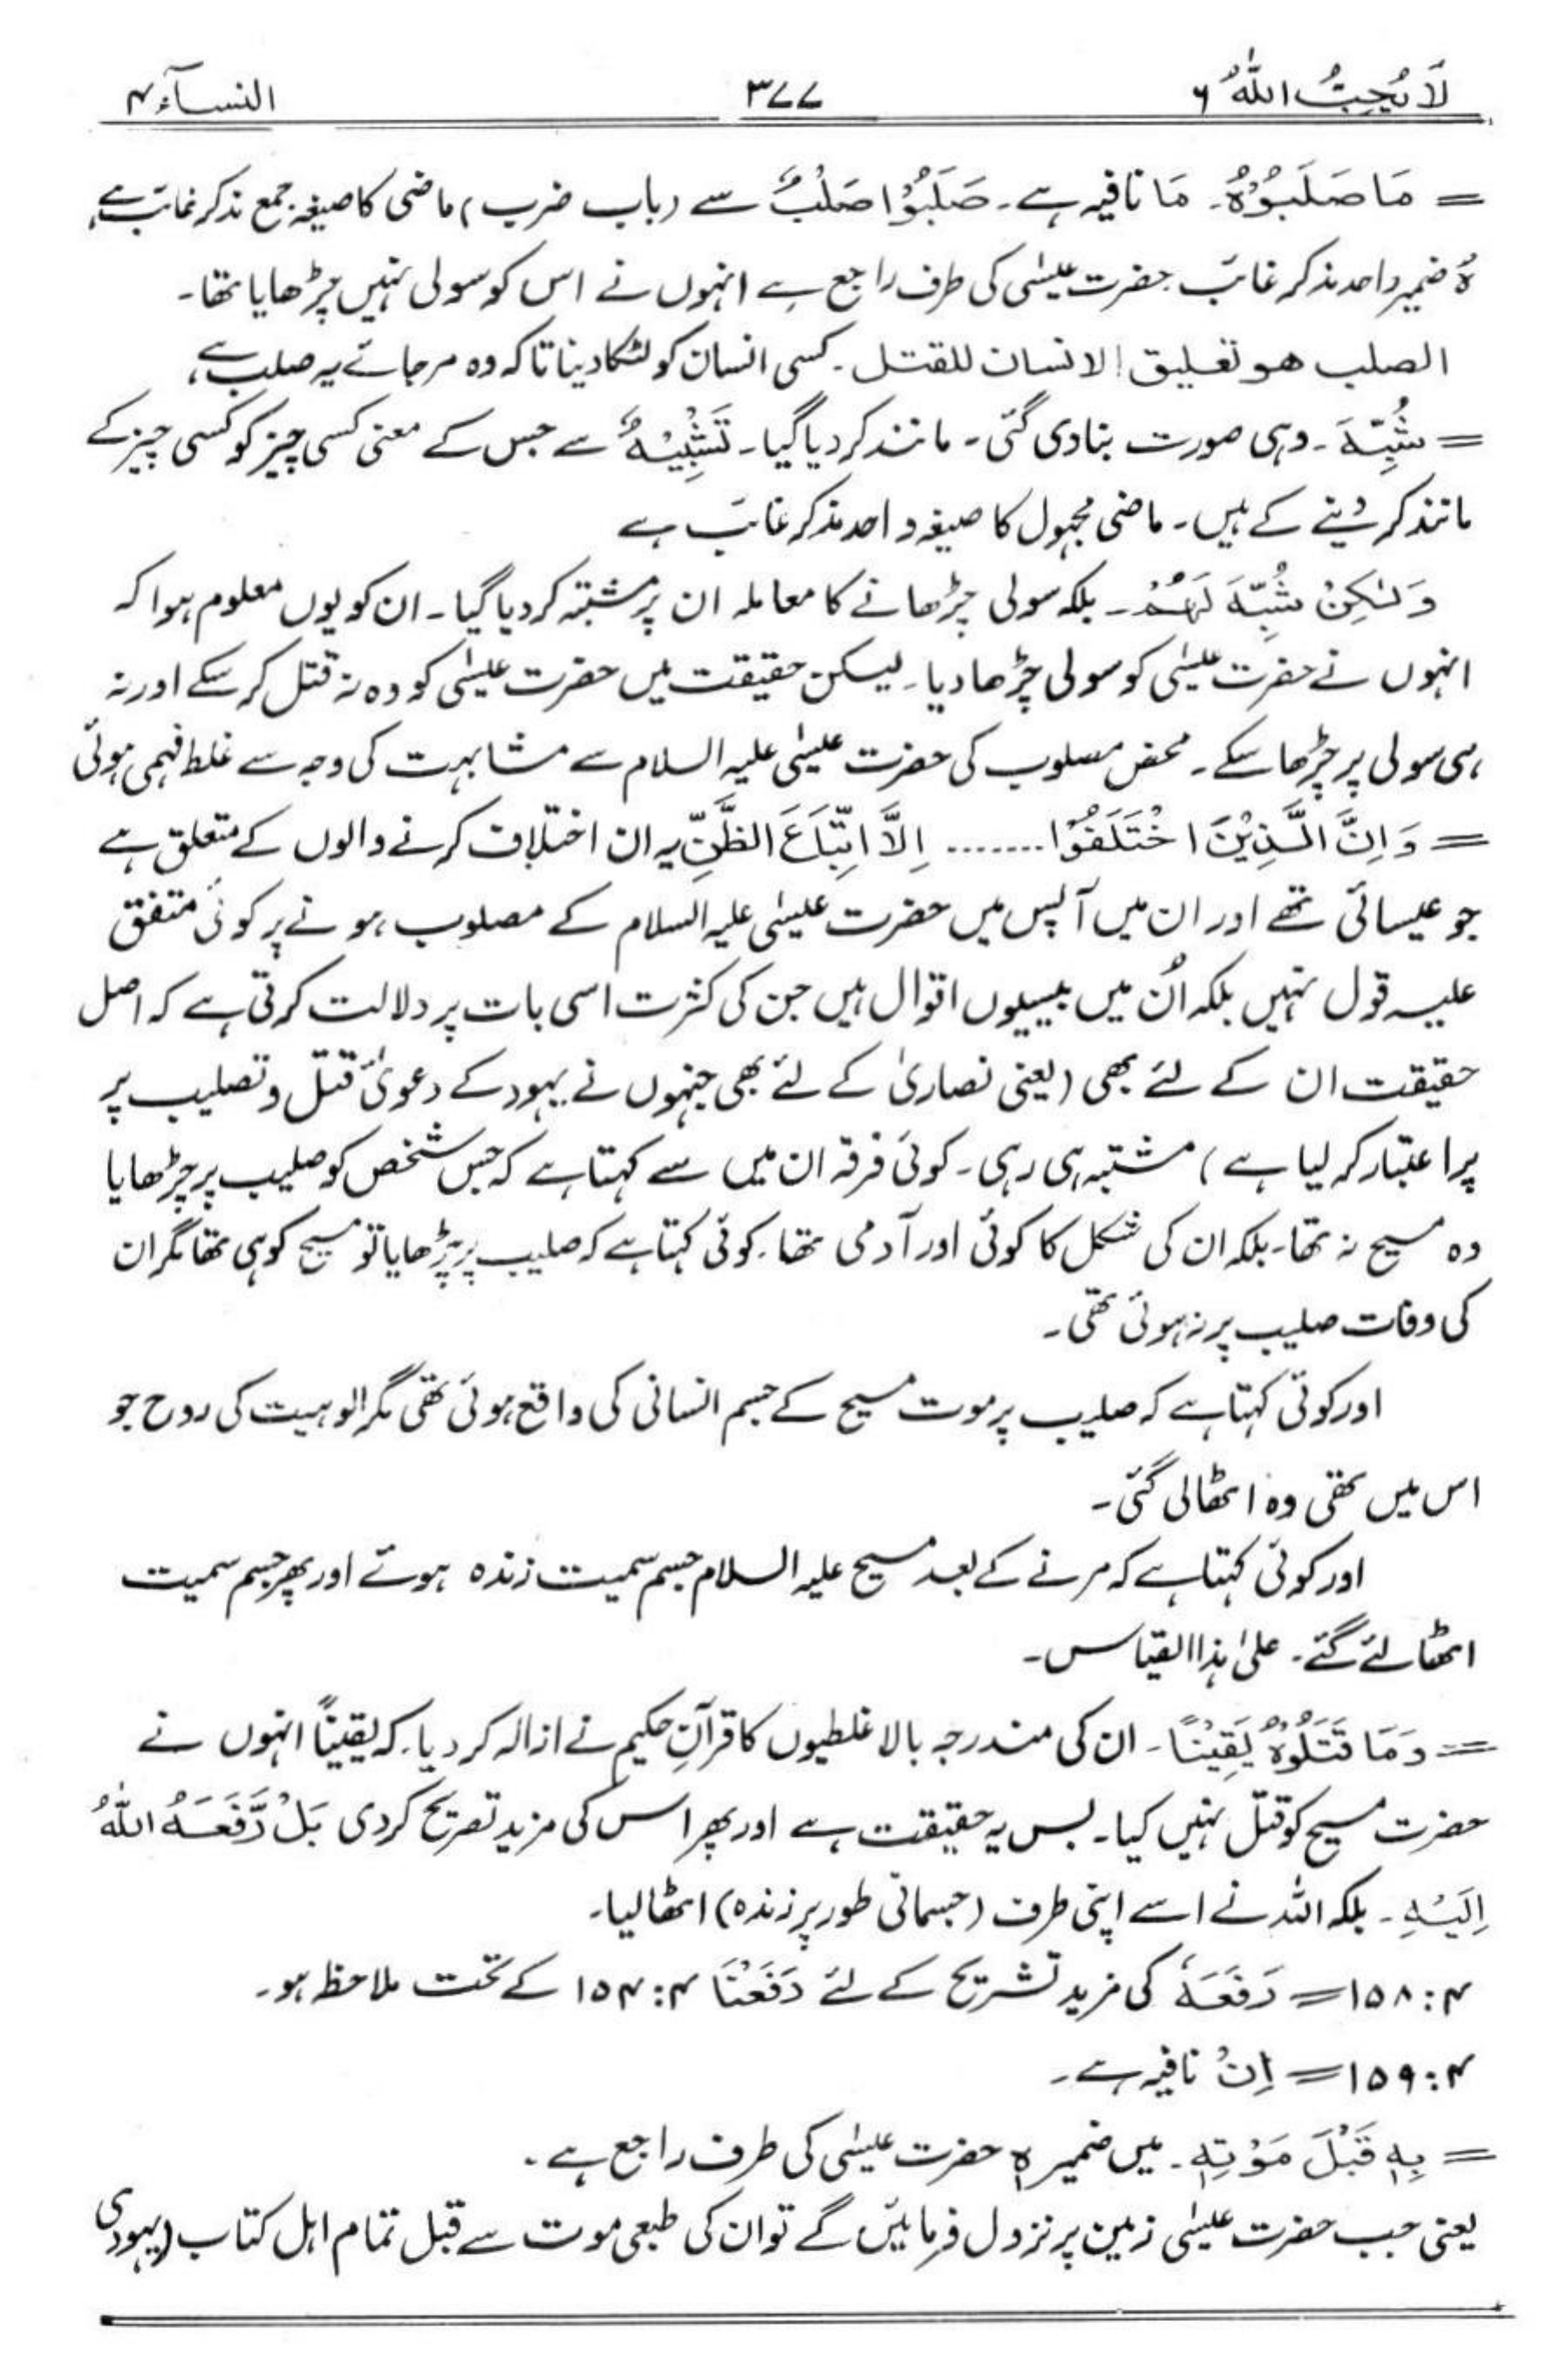 لَا يُحِبُّ اللّٰهُ ٦ ٣٧٧ النسآء ٤
= مَا صَلَبُوْهُ۔ مَا نافیہ ہے۔ صَلَبُوْا صَلْبٌ سے (باب ضرب) ماضی کا صیغہ جمع مذکر غائب ہے،
ہُ ضمیر واحد مذکر غائب حضرت عیسٰی کی طرف راجع ہے انہوں نے اس کو سولی نہیں چڑھایا تھا۔
الصلب ھو تعلیق الانسان للقتل۔ کسی انسان کو لٹکا دینا تاکہ وہ مر جائے یہ صلب ہے،
= شُبِّہَ۔ وہی صورت بنا دی گئی۔ مانند کر دیا گیا۔ تَشْبِیْہٌ سے جس کے معنی کسی چیز کو کسی چیز کے
مانند کر دینے کے ہیں۔ ماضی مجہول کا صیغہ واحد مذکر غائب ہے
وَلٰکِنْ شُبِّہَ لَھُمْ۔ بلکہ سولی چڑھانے کا معاملہ ان پر مشتبہ کر دیا گیا۔ ان کو یوں معلوم ہوا کہ
انہوں نے حضرت عیسٰی کو سولی چڑھا دیا۔ لیکن حقیقت میں حضرت عیسٰی کو وہ نہ قتل کر سکے اور نہ
ہی سولی پر چڑھا سکے۔ محض مصلوب کی حضرت عیسٰی علیہ السلام سے مشابہت کی وجہ سے غلط فہمی ہوئی
= وَاِنَّ الَّذِیْنَ اخْتَلَفُوْا ....... اِلَّا اتِّبَاعَ الظَّنِّ یہ ان اختلاف کرنے والوں کے متعلق ہے
جو عیسائی تھے اور ان میں آپس میں حضرت عیسٰی علیہ السلام کے مصلوب ہونے پر کوئی متفق
علیہ قول نہیں بلکہ اُن میں بیسیوں اقوال ہیں جن کی کثرت اسی بات پر دلالت کرتی ہے کہ اصل
حقیقت ان کے لئے بھی (یعنی نصاریٰ کے لئے بھی جنہوں نے یہود کے دعویٰ قتل و تصلیب پر
پر اعتبار کر لیا ہے) مشتبہ ہی رہی۔ کوئی فرقہ ان میں سے کہتا ہے کہ جس شخص کو صلیب پر چڑھایا
وہ مسیح نہ تھا۔ بلکہ ان کی شکل کا کوئی اور آدمی تھا۔ کوئی کہتا ہے کہ صلیب پر چڑھایا تو مسیح کو ہی تھا مگر ان
کی وفات صلیب پر نہ ہوئی تھی۔
اور کوئی کہتا ہے کہ صلیب پر موت مسیح کے جسم انسانی کی واقع ہوئی تھی مگر الوہیت کی روح جو
اس میں تھی وہ اٹھالی گئی۔
اور کوئی کہتا ہے کہ مرنے کے بعد مسیح علیہ السلام جسم سمیت زندہ ہوئے اور پھر جسم سمیت
اٹھا لئے گئے۔ علیٰ ہذا القیاس۔
= وَمَا قَتَلُوْہُ یَقِیْنًا۔ ان کی مندرجہ بالا غلطیوں کا قرآنِ حکیم نے ازالہ کر دیا۔ کہ یقیناً انہوں نے
حضرت مسیح کو قتل نہیں کیا۔ بس یہ حقیقت ہے اور پھر اس کی مزید تصریح کر دی بَلْ رَّفَعَہُ اللّٰہُ
اِلَیْہِ۔ بلکہ اللہ نے اسے اپنی طرف (جسمانی طور پر زندہ) اٹھالیا۔
٤: ١٥٨ = رَفَعَہُ کی مزید تشریح کے لئے رَفَعْنَا ٤: ١٥٤ کے تحت ملاحظہ ہو۔
٤: ١٥٩ = اِنْ نافیہ ہے۔
= بِہٖ قَبْلَ مَوْتِہٖ۔ میں ضمیر ہٖ حضرت عیسٰی کی طرف راجع ہے۔
یعنی جب حضرت عیسٰی زمین پر نزول فرمائیں گے تو ان کی طبعی موت سے قبل تمام اہل کتاب (یہودی